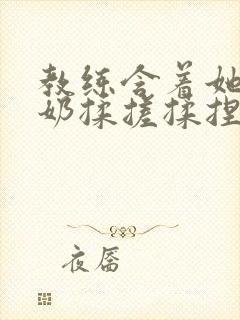 教练含着她
奶揉搓揉捏
夜唇